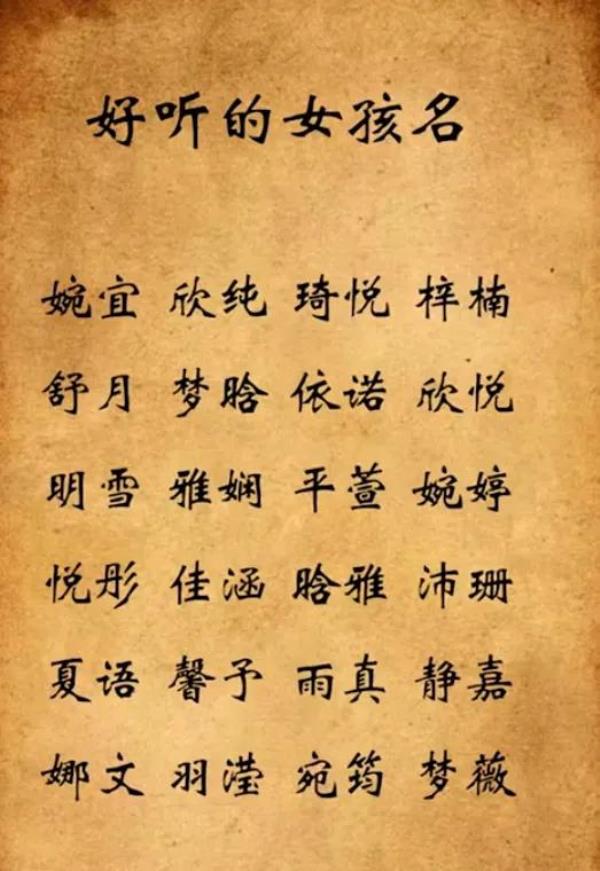 好听的女孩名
婉宜 欣纯 琦悦 梓楠
舒月 梦晗 依诺 欣悦
明雪 雅娴 平萱 婉婷
悦彤 佳涵 晗雅 沛珊
夏语 馨予 雨真 静嘉
娜文 羽滢 宛筠 梦薇